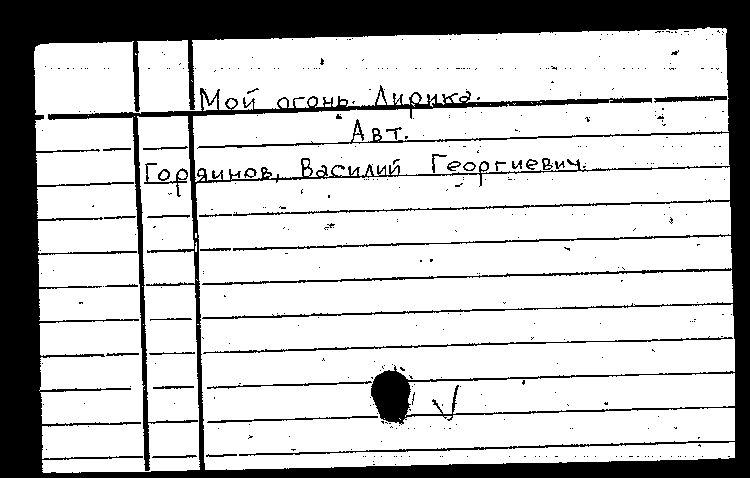 Мой огонь. Лирика.
Авт.
Горяинов, Василий Георгиевич.